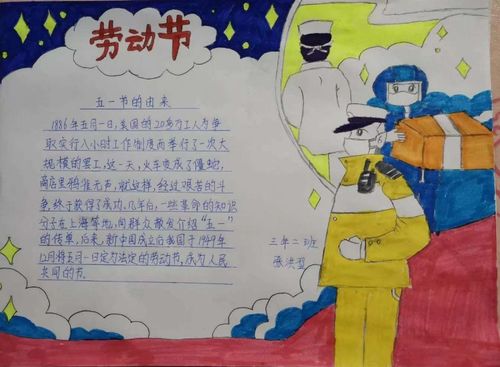 劳动节
五一节的由来
1886年五月一日,美国的20多万工人为争
取实行八小时工作制度而举行了一次大
规模的罢工,这一天,火车变成了僵蛇,
商店里鸦雀无声,就这样,经过艰苦的斗
争终于获得了成功,几年后,一些革命的知识
分子在上海等地,向群众散发介绍“五一”
的传单,后来,新中国成立后我国于1949年
12月将五月一日定为法定的劳动节,成为人民
共同的节.
三年二班
张洪